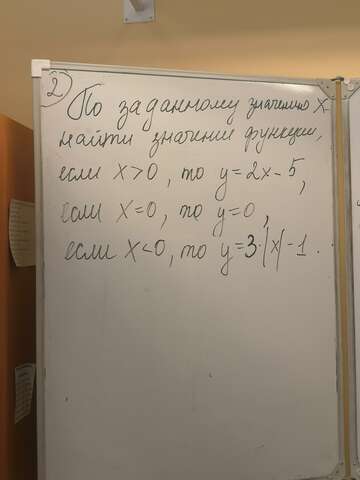 2)
По заданному значению x
найти значение функции,
если x>0, то y=2x-5,
если x=0, то y=0,
если x<0, то y=3·|x|-1.